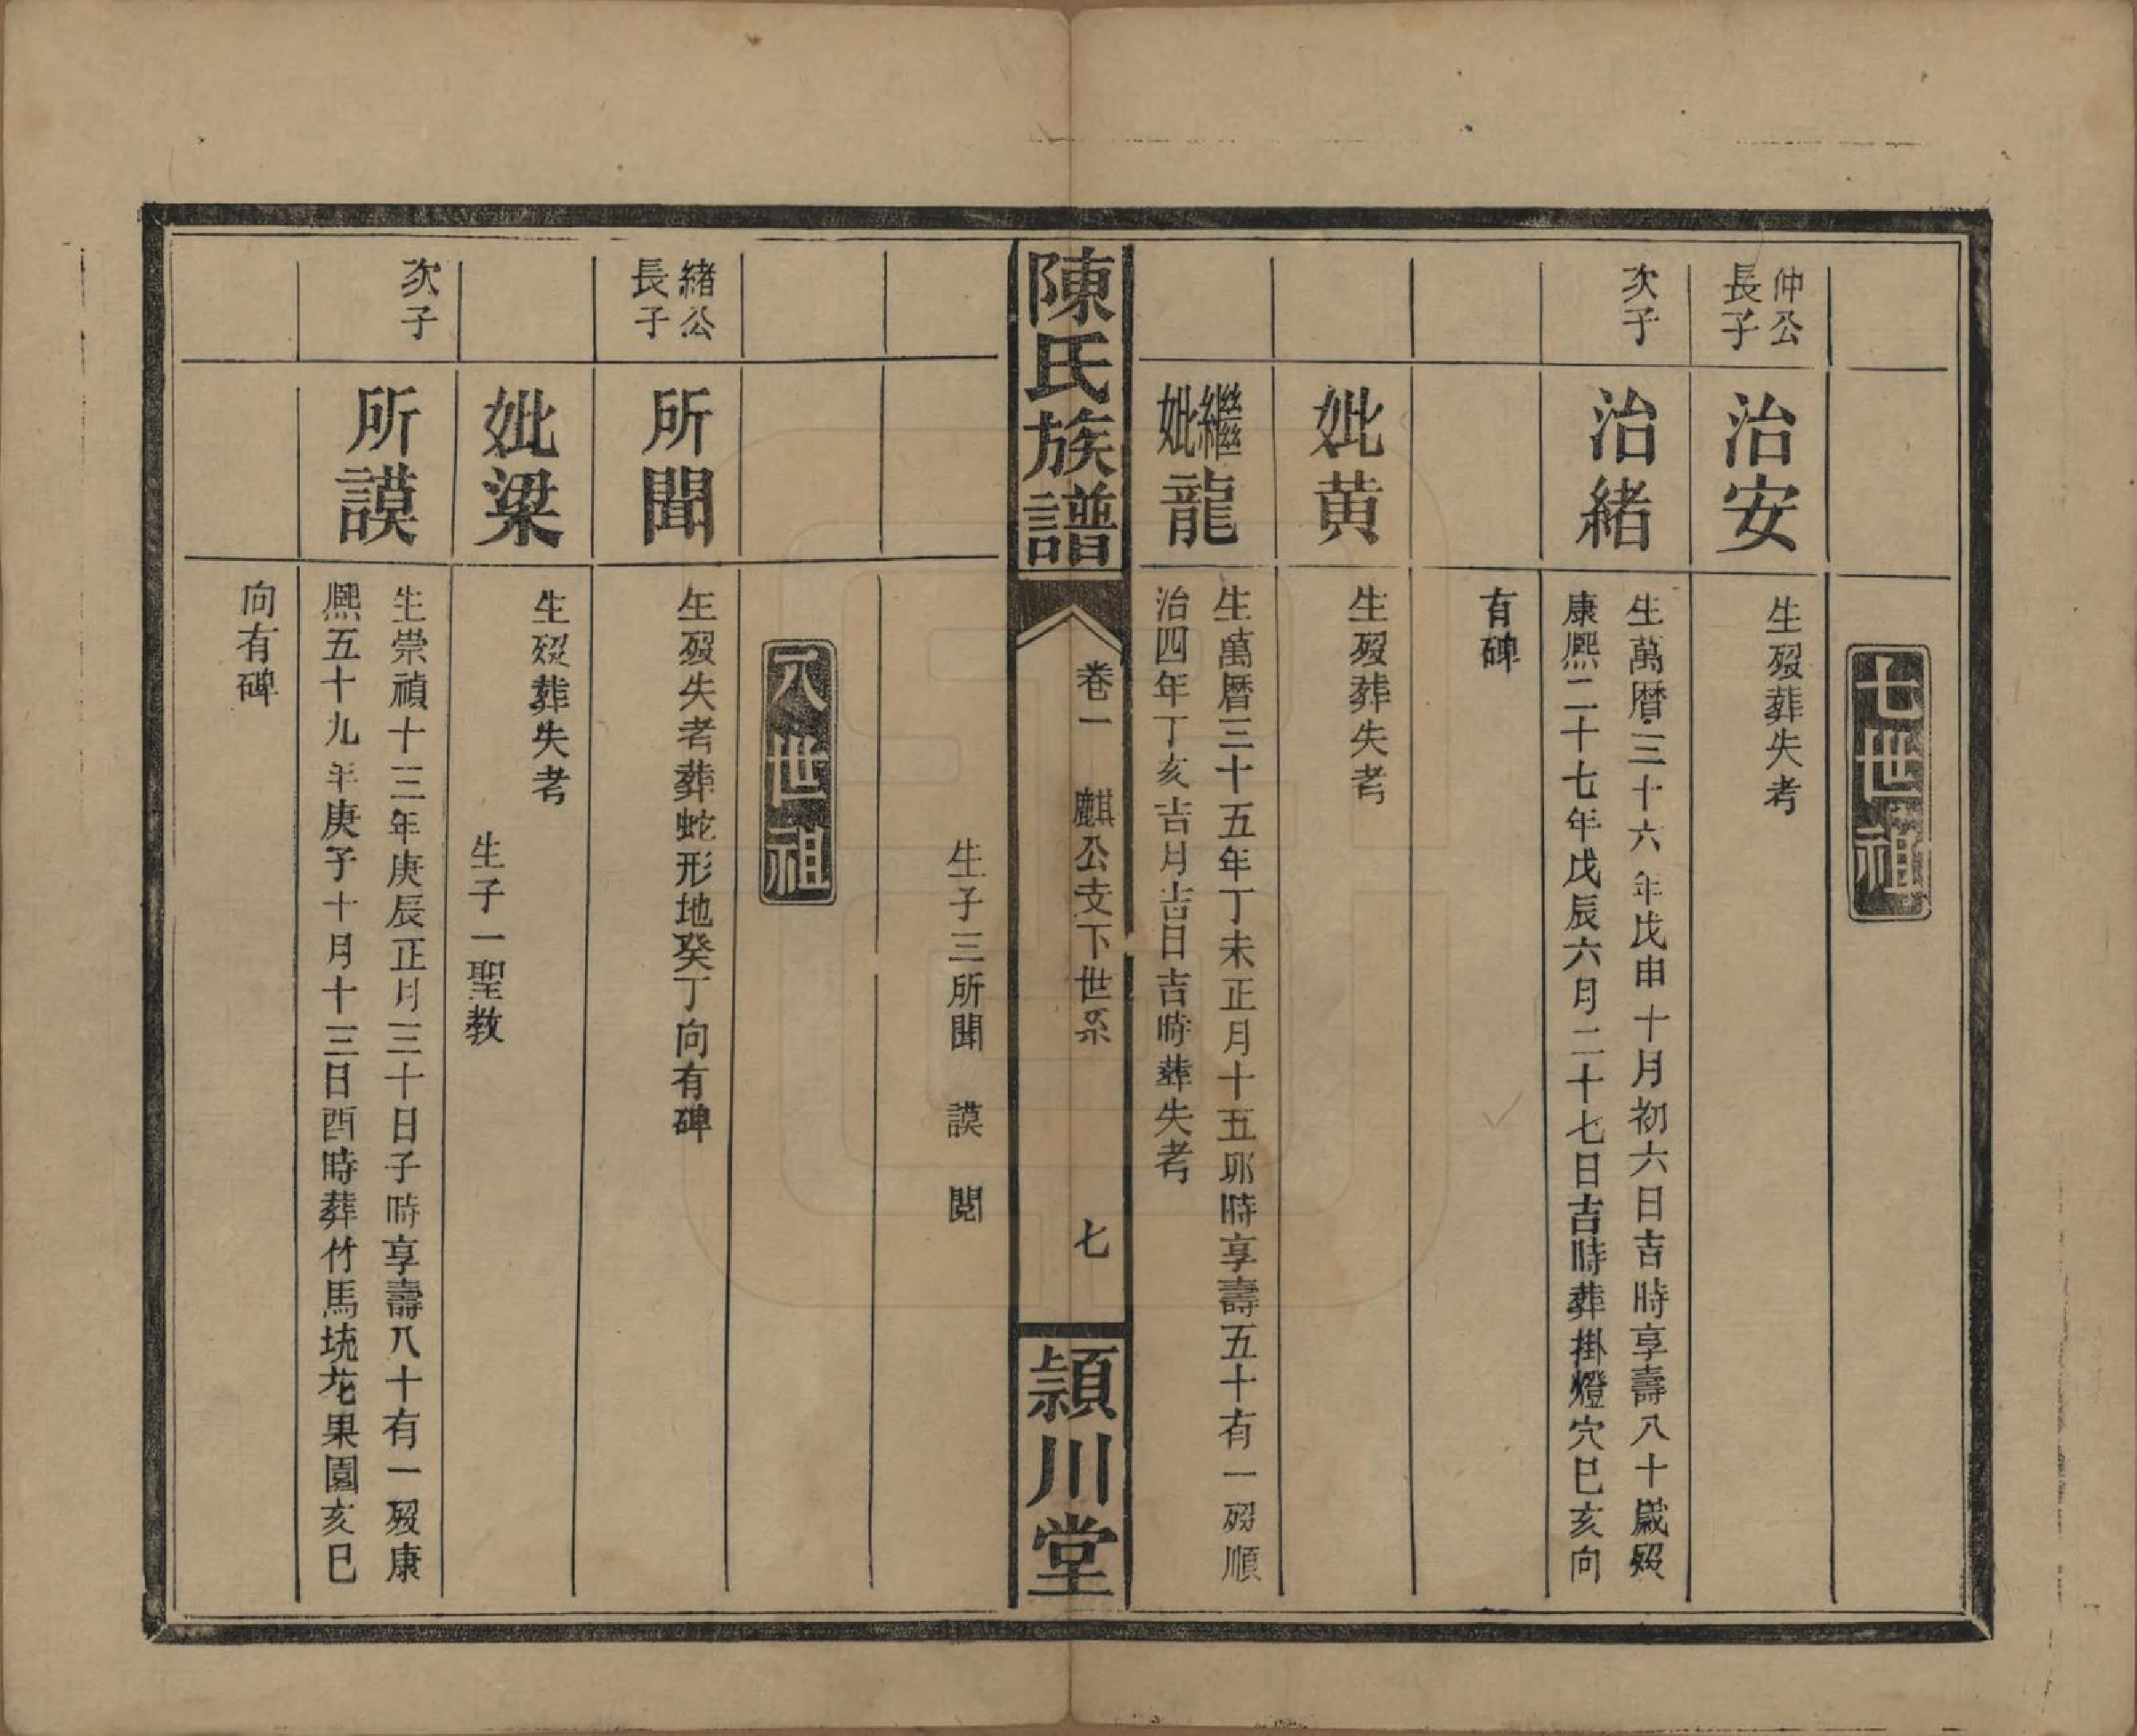 七世祖
仲公
長子
治安
生歿葬失考
次子
治緒
生萬曆三十六年戊申十月初六日吉時享壽八十歲歿
康熙二十七年戊辰六月二十七日吉時葬掛燈穴巳亥向
有碑
妣黄
生歿葬失考
繼
妣
龍
生萬曆三十五年丁未正月十五卯時享壽五十有一歿順
治四年丁亥吉月吉日吉時葬失考
陳氏族譜
卷一　麒公支下世系
七
潁川堂
生子三所聞　謨　閱
八世祖
緒公
長子
所聞
生歿失考葬蛇形地癸丁向有碑
妣梁
生歿葬失考
生子一聖教
次子
所謨
生崇禎十三年庚辰正月三十日子時享壽八十有一歿康
熙五十九年庚子十月十三日酉時葬竹馬垸花果園亥巳
向有碑